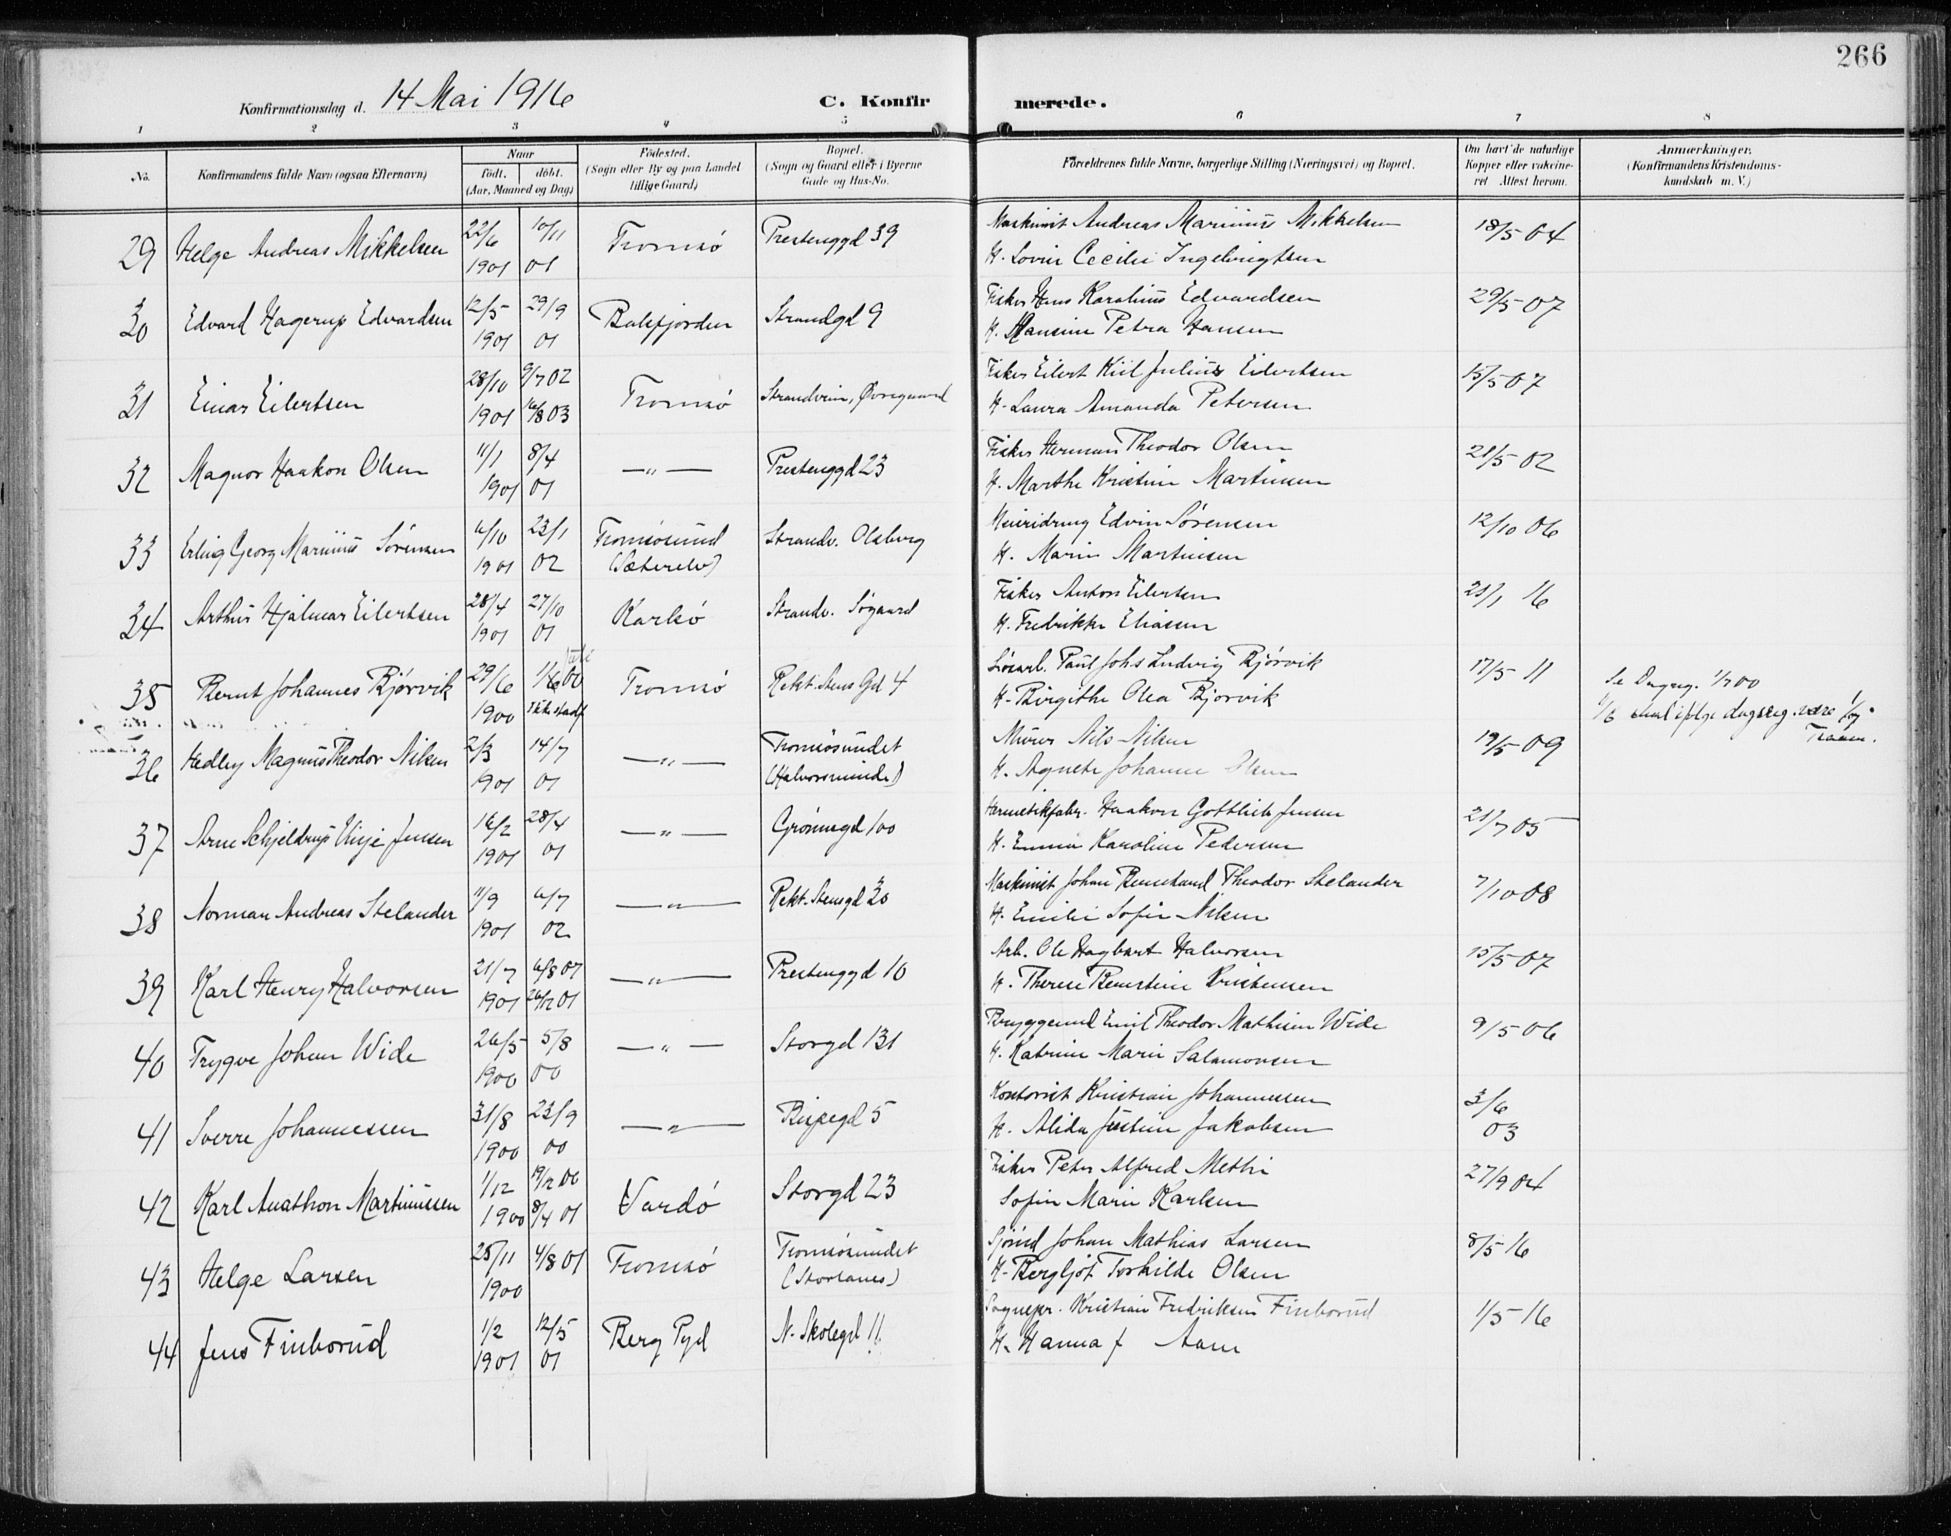 266
Konfirmationsdag d. 14 Mai 1916 C. Konfir merede.
1 2 3 4 5 6 7 8
No. Konfirmandens fulde Navn (ogsaa Efternavn) Naar født. døbt. (Aar, Maaned og Dag) Fødested. (Sogn eller By og paa Landet tillige Gaard) Bopæl. (Sogn og Gaard eller i Byerne Gade og Hus-No. Forældrenes fulde Navne, borgerlige Stilling (Næringsvei) og Bopæl. Om havt de naturlige Kopper eller vakcineret Attest herom. Anmærkninger. (Konfirmandens Kristendomskundskab m. V.)
29 Helge Andreas Mikkelsen 22/6 1901 10/11 01 Tromsø Prestenggd 39 Maskinist Andreas Marinius Mikkelsen 18/5 04
H. Lovise Cecilie Ingebrigtsen
30 Edvard Hagerup Edvardsen 12/5 1901 29/9 01 Balsfjorden Strandgd 9 Fisker Hans Karolius Edvardsen 29/5 07
H. Hansine Petra Hansen
31 Einar Eilertsen 28/10 1901 9/7 02 16/8 03 Tromsø Strandvein, Øvregaard Fisker Eilert Kiil Julius Eilertsen 15/5 07
H. Laura Amanda Petersen
32 Magnor Haakon Olsen 11/1 1901 8/4 01 —"— Prestenggd 23 Fisker Herman Theodor Olsen 21/5 02
H. Marthe Kristine Martinsen
33 Erling Georg Marinius Sørensen 6/10 1901 23/1 02 Tromsøsund (Sæterelv) Strandv. Olsborg Edvin Sørensen 12/10 06
H. Marie Martinsen
34 Arthur Hjalmar Eilertsen 28/4 1901 27/10 01 Karlsø Strandv. Søgaard Fisker Anton Eilertsen 21/1 16
H. Fredrikke Eliassen
35 Bernt Johannes Bjørvik 29/6 1900 1/6 00 ikke stadf Tromsø Rekt. Stens Gd 4 Løsarb. Paul Johs Ludvig Bjørvik 17/5 11 Se Dagreg. 1/7 00
H. Birgithe Olea Bjørvik 1/6 skal ifølge dagreg. være
36 Hedley Magnus Theodor Nilsen 2/3 1901 14/7 01 —"— Tromsøsundet (Halvorsminde) Murer Nils Nilsen 19/5 09
H. Agnete Johanne Olsen
37 Arne Schjeldrup Vinje Jensen 16/2 1901 28/4 01 —"— Grønnegd 100 Hermetikfabr. Haakon Gottlieb Jensen 21/7 05
H. Emma Karoline Pedersen
38 Norman Andreas Stelander 11/9 1901 6/7 02 —"— Rekt. Stensgd 30 Maskinist Johan Theodor Stelander 7/10 08
H. Emilie Sofie Nilsen
39 Karl Henry Halvorsen 21/7 1901 6/8 07 26/12 01 —"— Prestenggd 10 Arb. Ole Hagbart Halvorsen 15/5 07
H. Therese Bernstine Kristensen
40 Trygve Johan Wide 26/5 1900 5/8 00 —"— Storgd 131 Bryggemd Emil Theodor Mathisen Wide 9/5 06
H. Katrine Marie Salamonsen
41 Sverre Johannessen 31/8 1900 23/9 00 —"— Bispegd 5 Kontorist Kristian Johannessen 3/6 03
H. Alida Justine Jakobsen
42 Karl Anathon Martinussen 1/12 1900 19/12 00 8/4 01 Vardø Storgd 23 Fisker Peter Alfred Methi 27/9 04
Sofie Marie Karlsen
43 Helge Larsen 25/11 1900 4/8 01 Tromsø Tromsøsundet (Storlanes) Sjømd Johan Mathias Larsen 8/5 16
H. Bergljot Torhilde Olsen
44 Jens Finborud 1/2 1901 12/5 01 Berg Pgd N. Skolegd 11 Sognepr. Kristian Fredriksen Finborud 1/5 16
H. Hanna f Aam